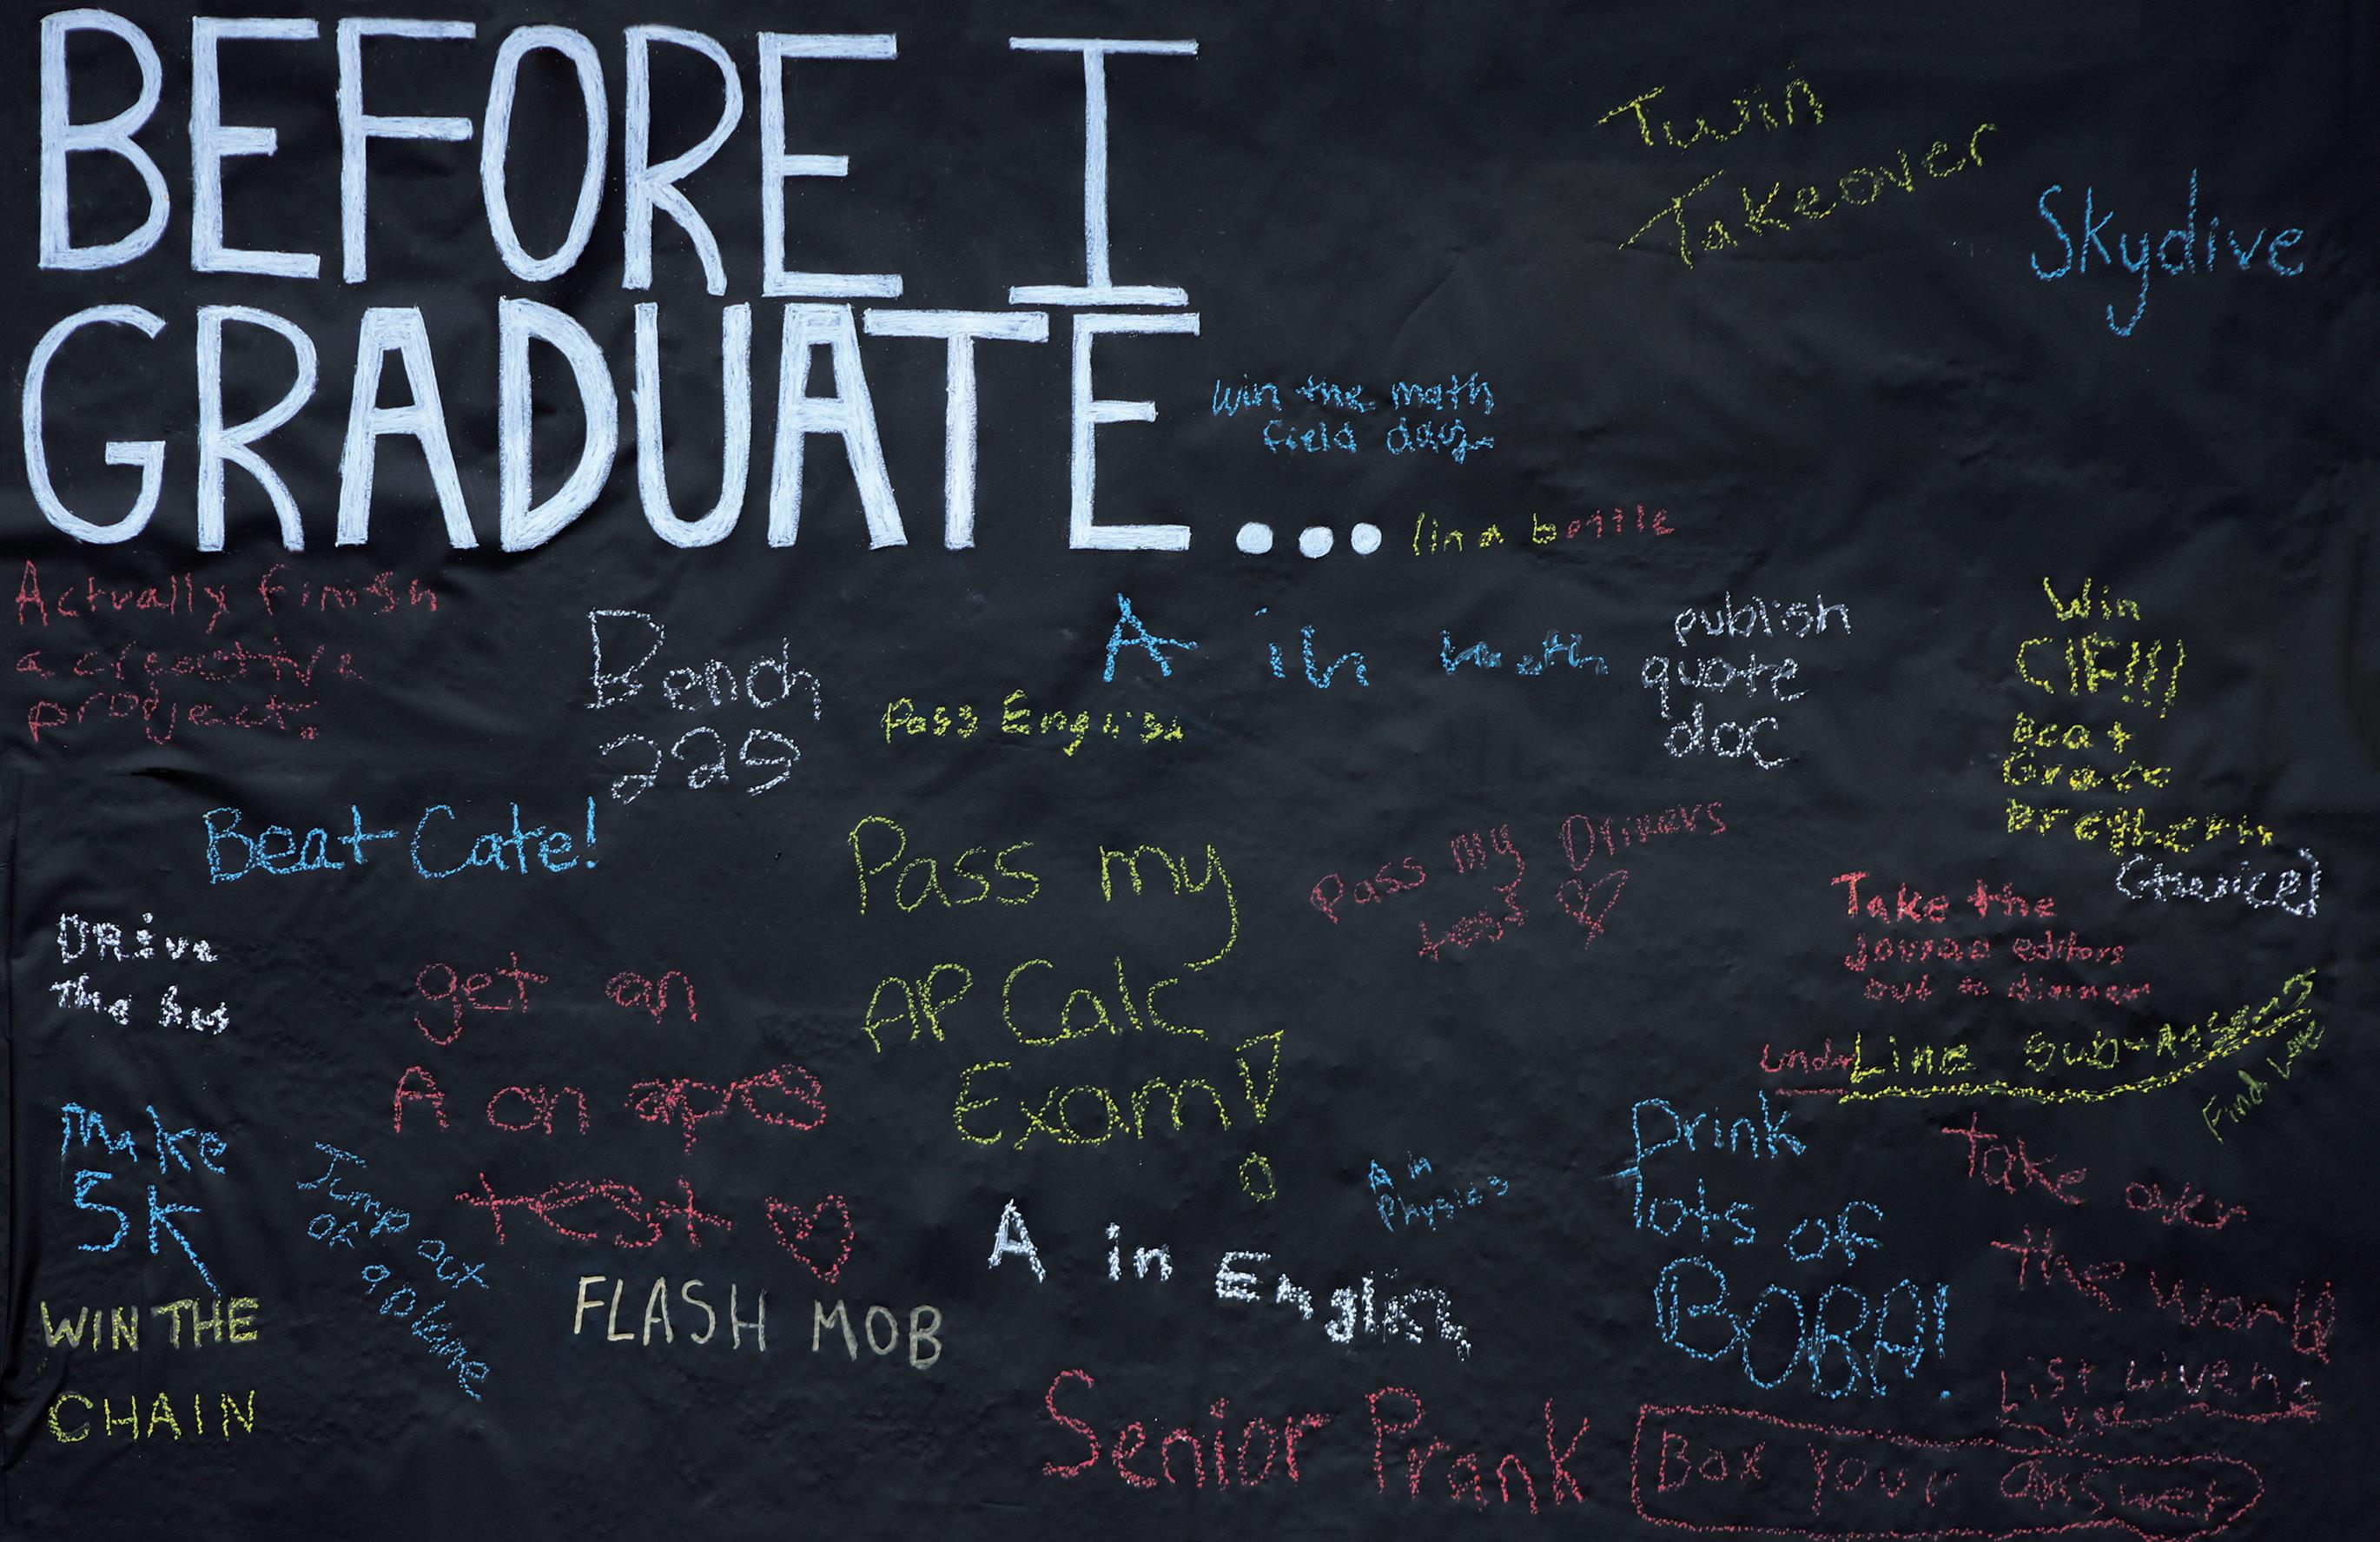 BEFORE I
GRADUATE...
Twin
Takeover
Skydive
Win the math
field day
in a bottle
Actually finish
a creative
project.
Bench
225
Pass English
A in math
publish
quote
doc
Win
CIF!!!
Beat
Grace
Brethern
(twice)
Beat Cate!
Pass my
AP Calc
Exam!
Pass my Drivers
test
Take the
editors
out to dinner
DRive
the bus
get an
A on apes
test
underLine sub-Answers
Find Love
Make
5k
Jump out
of
a plane
A in
Physics
Drink
lots of
BOBA!
take over
the world
WIN THE
CHAIN
FLASH MOB
A in English
List Givens
Senior Prank
Box your answer